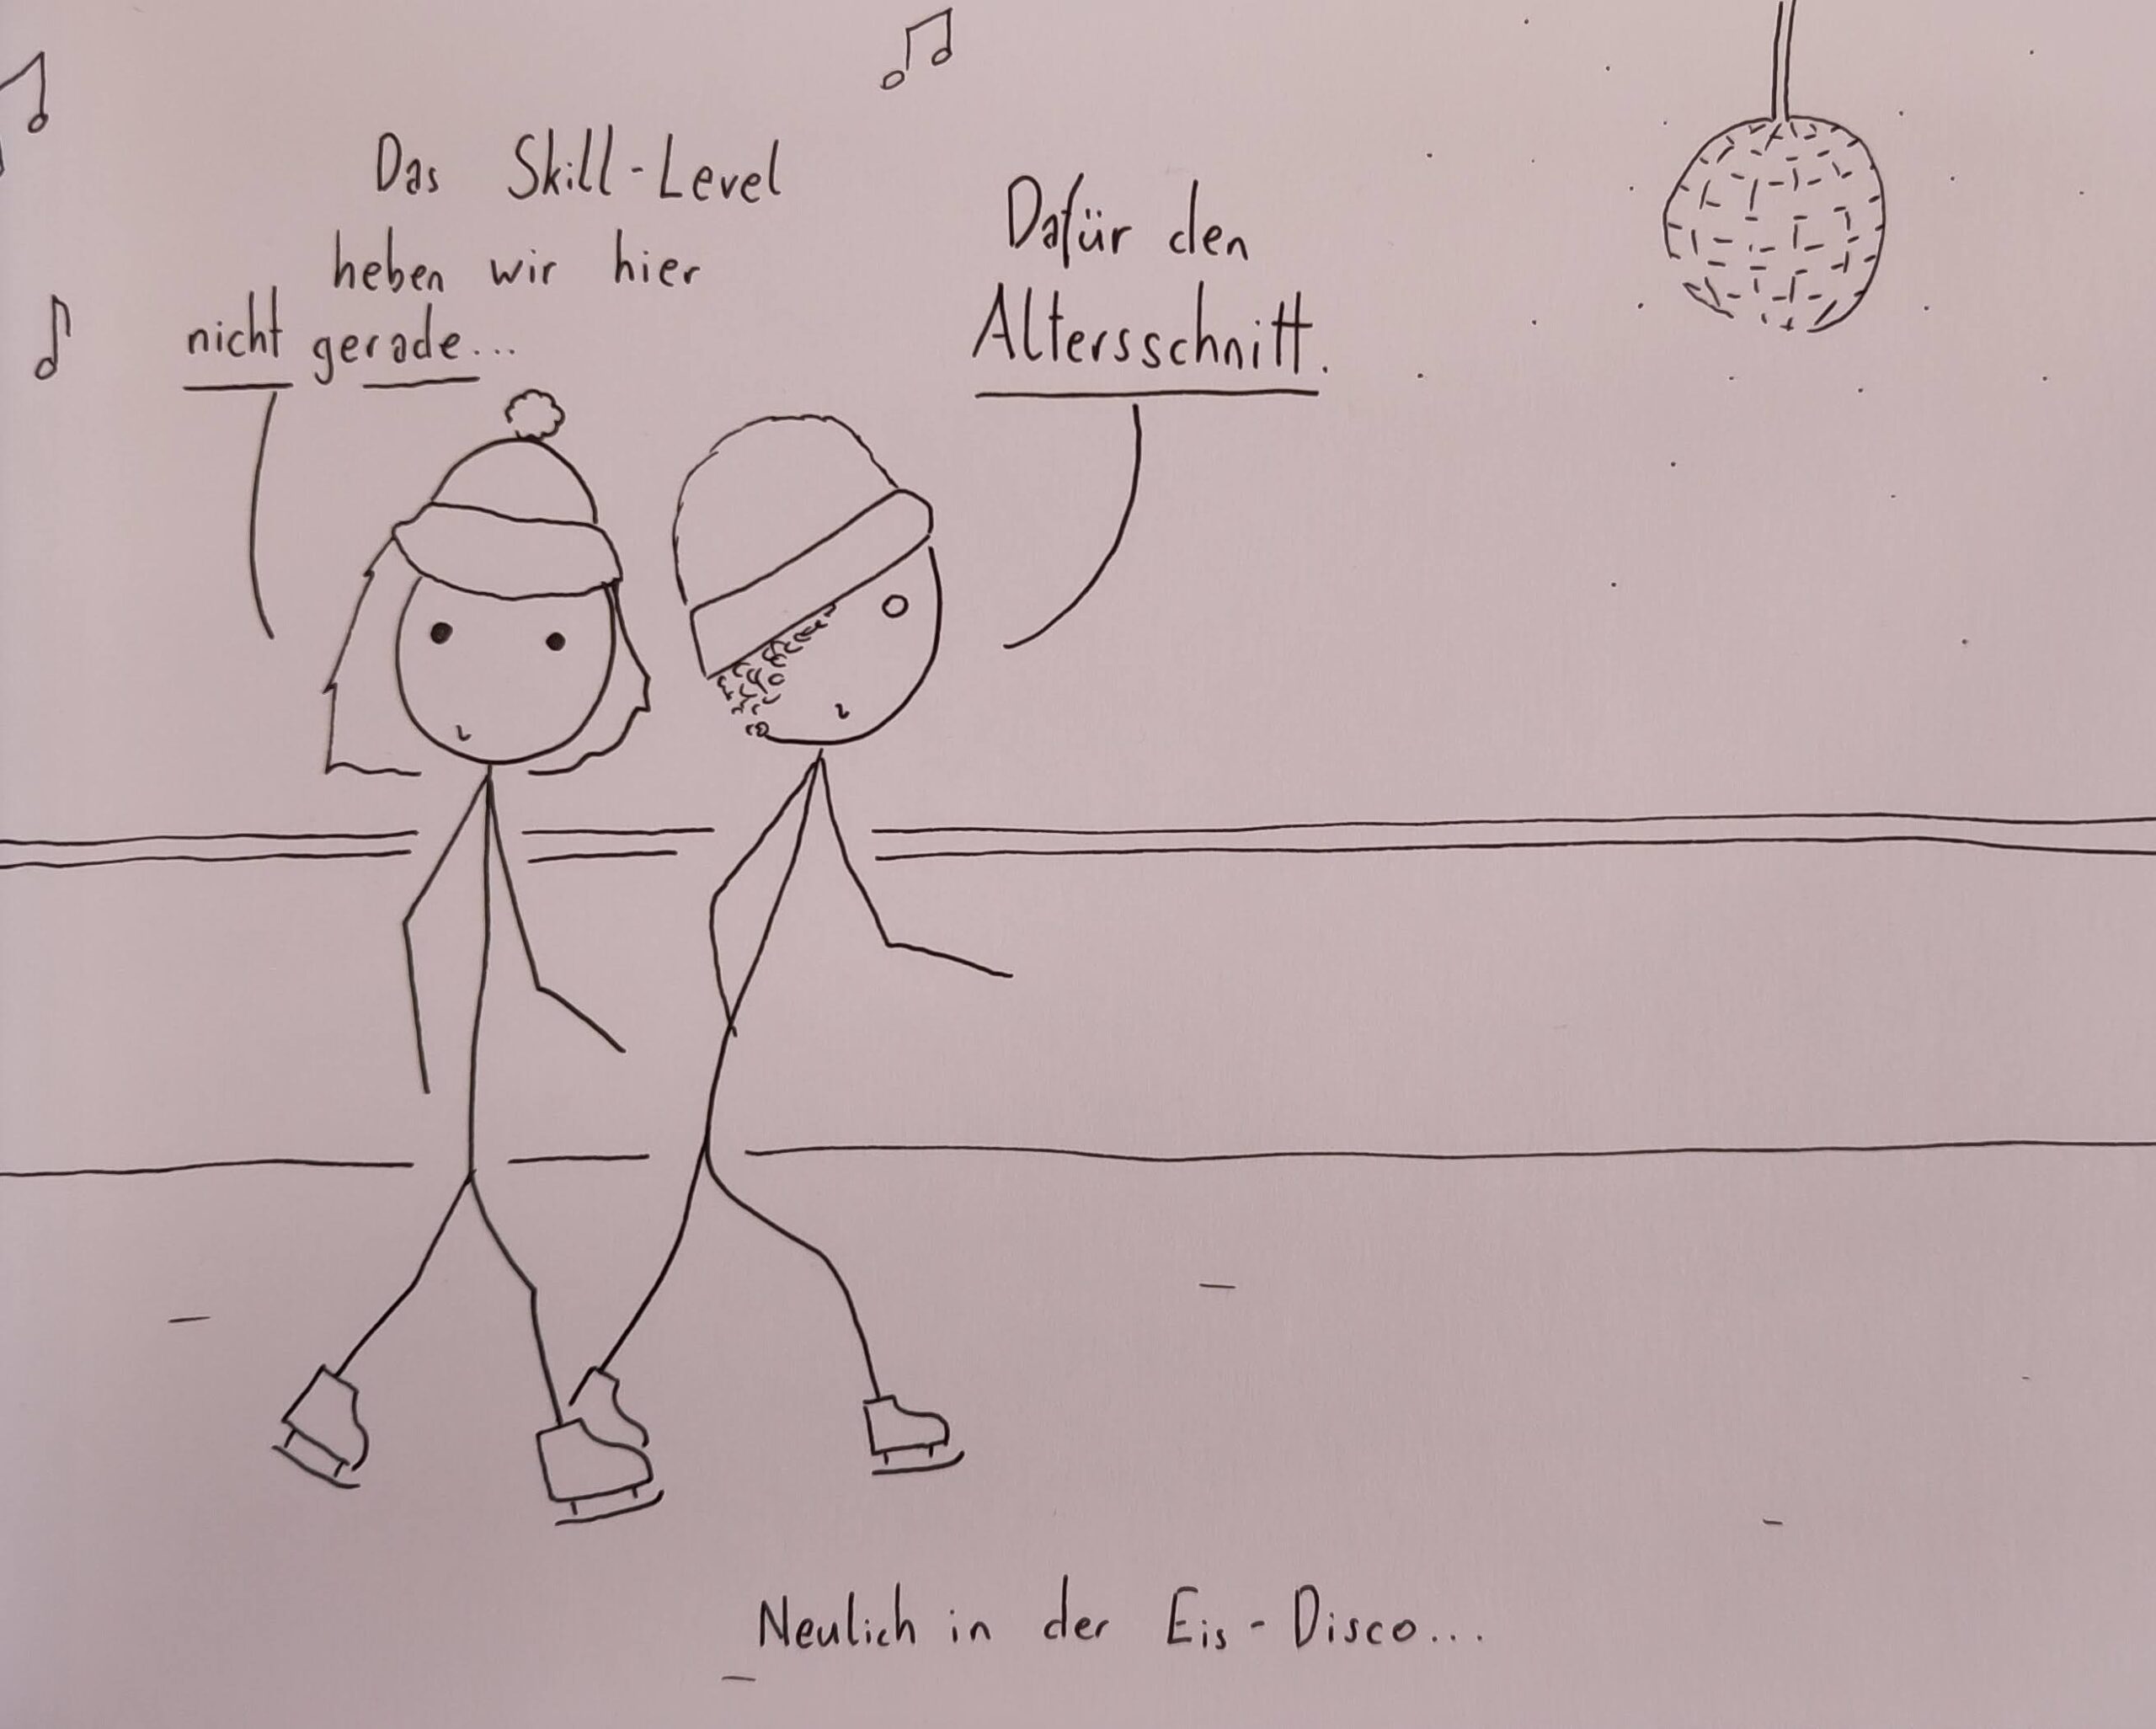 Das Skill-Level
heben wir hier
nicht gerade...
Dafür den
Altersschnitt.
Neulich in der Eis-Disco...